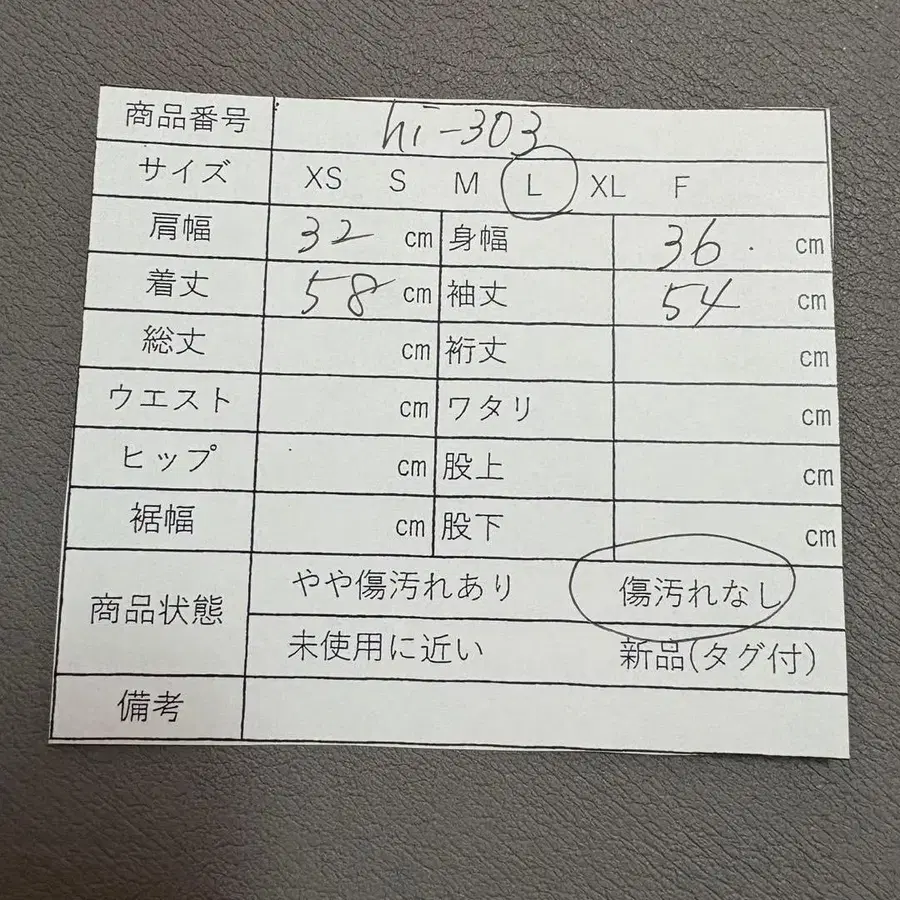 商品番号 hi-303
サイズ XS S M L XL F
肩幅 32 cm 身幅 36 cm
着丈 58 cm 袖丈 54 cm
総丈 cm 裄丈 cm
ウエスト cm ワタリ cm
ヒップ cm 股上 cm
裾幅 cm 股下 cm
商品状態 やや傷汚れあり 傷汚れなし
未使用に近い 新品(タグ付)
備考